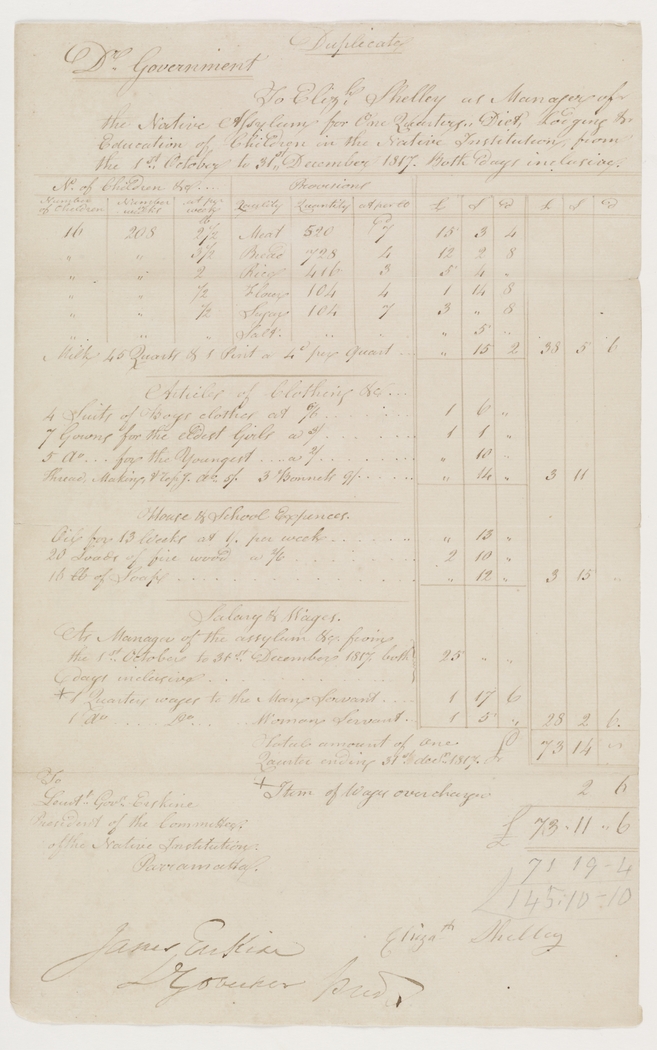 Duplicate
Dr. Government
To Elizth. Shelley as Manager of
the Native Assylum for One Quarters, Diet, Lodging &
Education of Children in the Native Institution, from
the 1st. October to 31st, December 1817. Both days inclusive.
No. of Children &c. . . . Provisions
Number of Children Number weeks at per week Quantity Quantity at per lb £ s D £ s D
16 208 2½ lb Meat 520 7 15 3 4
" " 3½ Bread 728 4 12 2 8
" " 2 Rice 416 3 5 4 "
" " ½ Flour 104 4 1 14 8
" " ½ Sugar 104 7 3 " 8
" " " Salt " " " 5 "
Milk 45 Quarts & 1 Pint a 4d per Quart . . " 15 2 38 5 6
Articles of Clothing &c. . .
4 Suits of Boys clothes at 6/6 . . . . . . 1 6 "
7 Gowns for the eldest Girls a 3/ . . . . . 1 1 "
5 do. . . for the Youngest . . . . a 2/ . . . . . " 10 "
Thread, Making & do. 5/. 3 Bonnets 9/. . . . . " 14 " 3 11
House & School Expences.
Oil for 13 Weeks at 1/. per week . . . . . . " 13 "
20 Loads of fire wood a 2/6 . . . . . . 2 10 "
16 lb of Soap . . . . . . . . . . " 12 " 3 15 "
Salary & Wages.
As Manager of the assylum &c. from
the 1st. October to 31st. December 1817 both 25 " "
days inclusive . . . . . . . . .
+ 1 Quarters wages to the Man Servant . . . . 1 17 6
1 do . . . . Do. . . . Woman Servant . . 1 5 " 28 2 6
Totale amount of One
Quarter ending 31st decr. 1817. £ 73 14 "
To + Item of Wages overcharge 2 6
Leutt. Govr. Erskine
President of the Committee £ 73 - 11 " 6
of the Native Institution. 71 19 - 4
Parramatta. £ 145 - 10 - 10
Elizath Shelley
James Erskine
Lt Governor Presdt